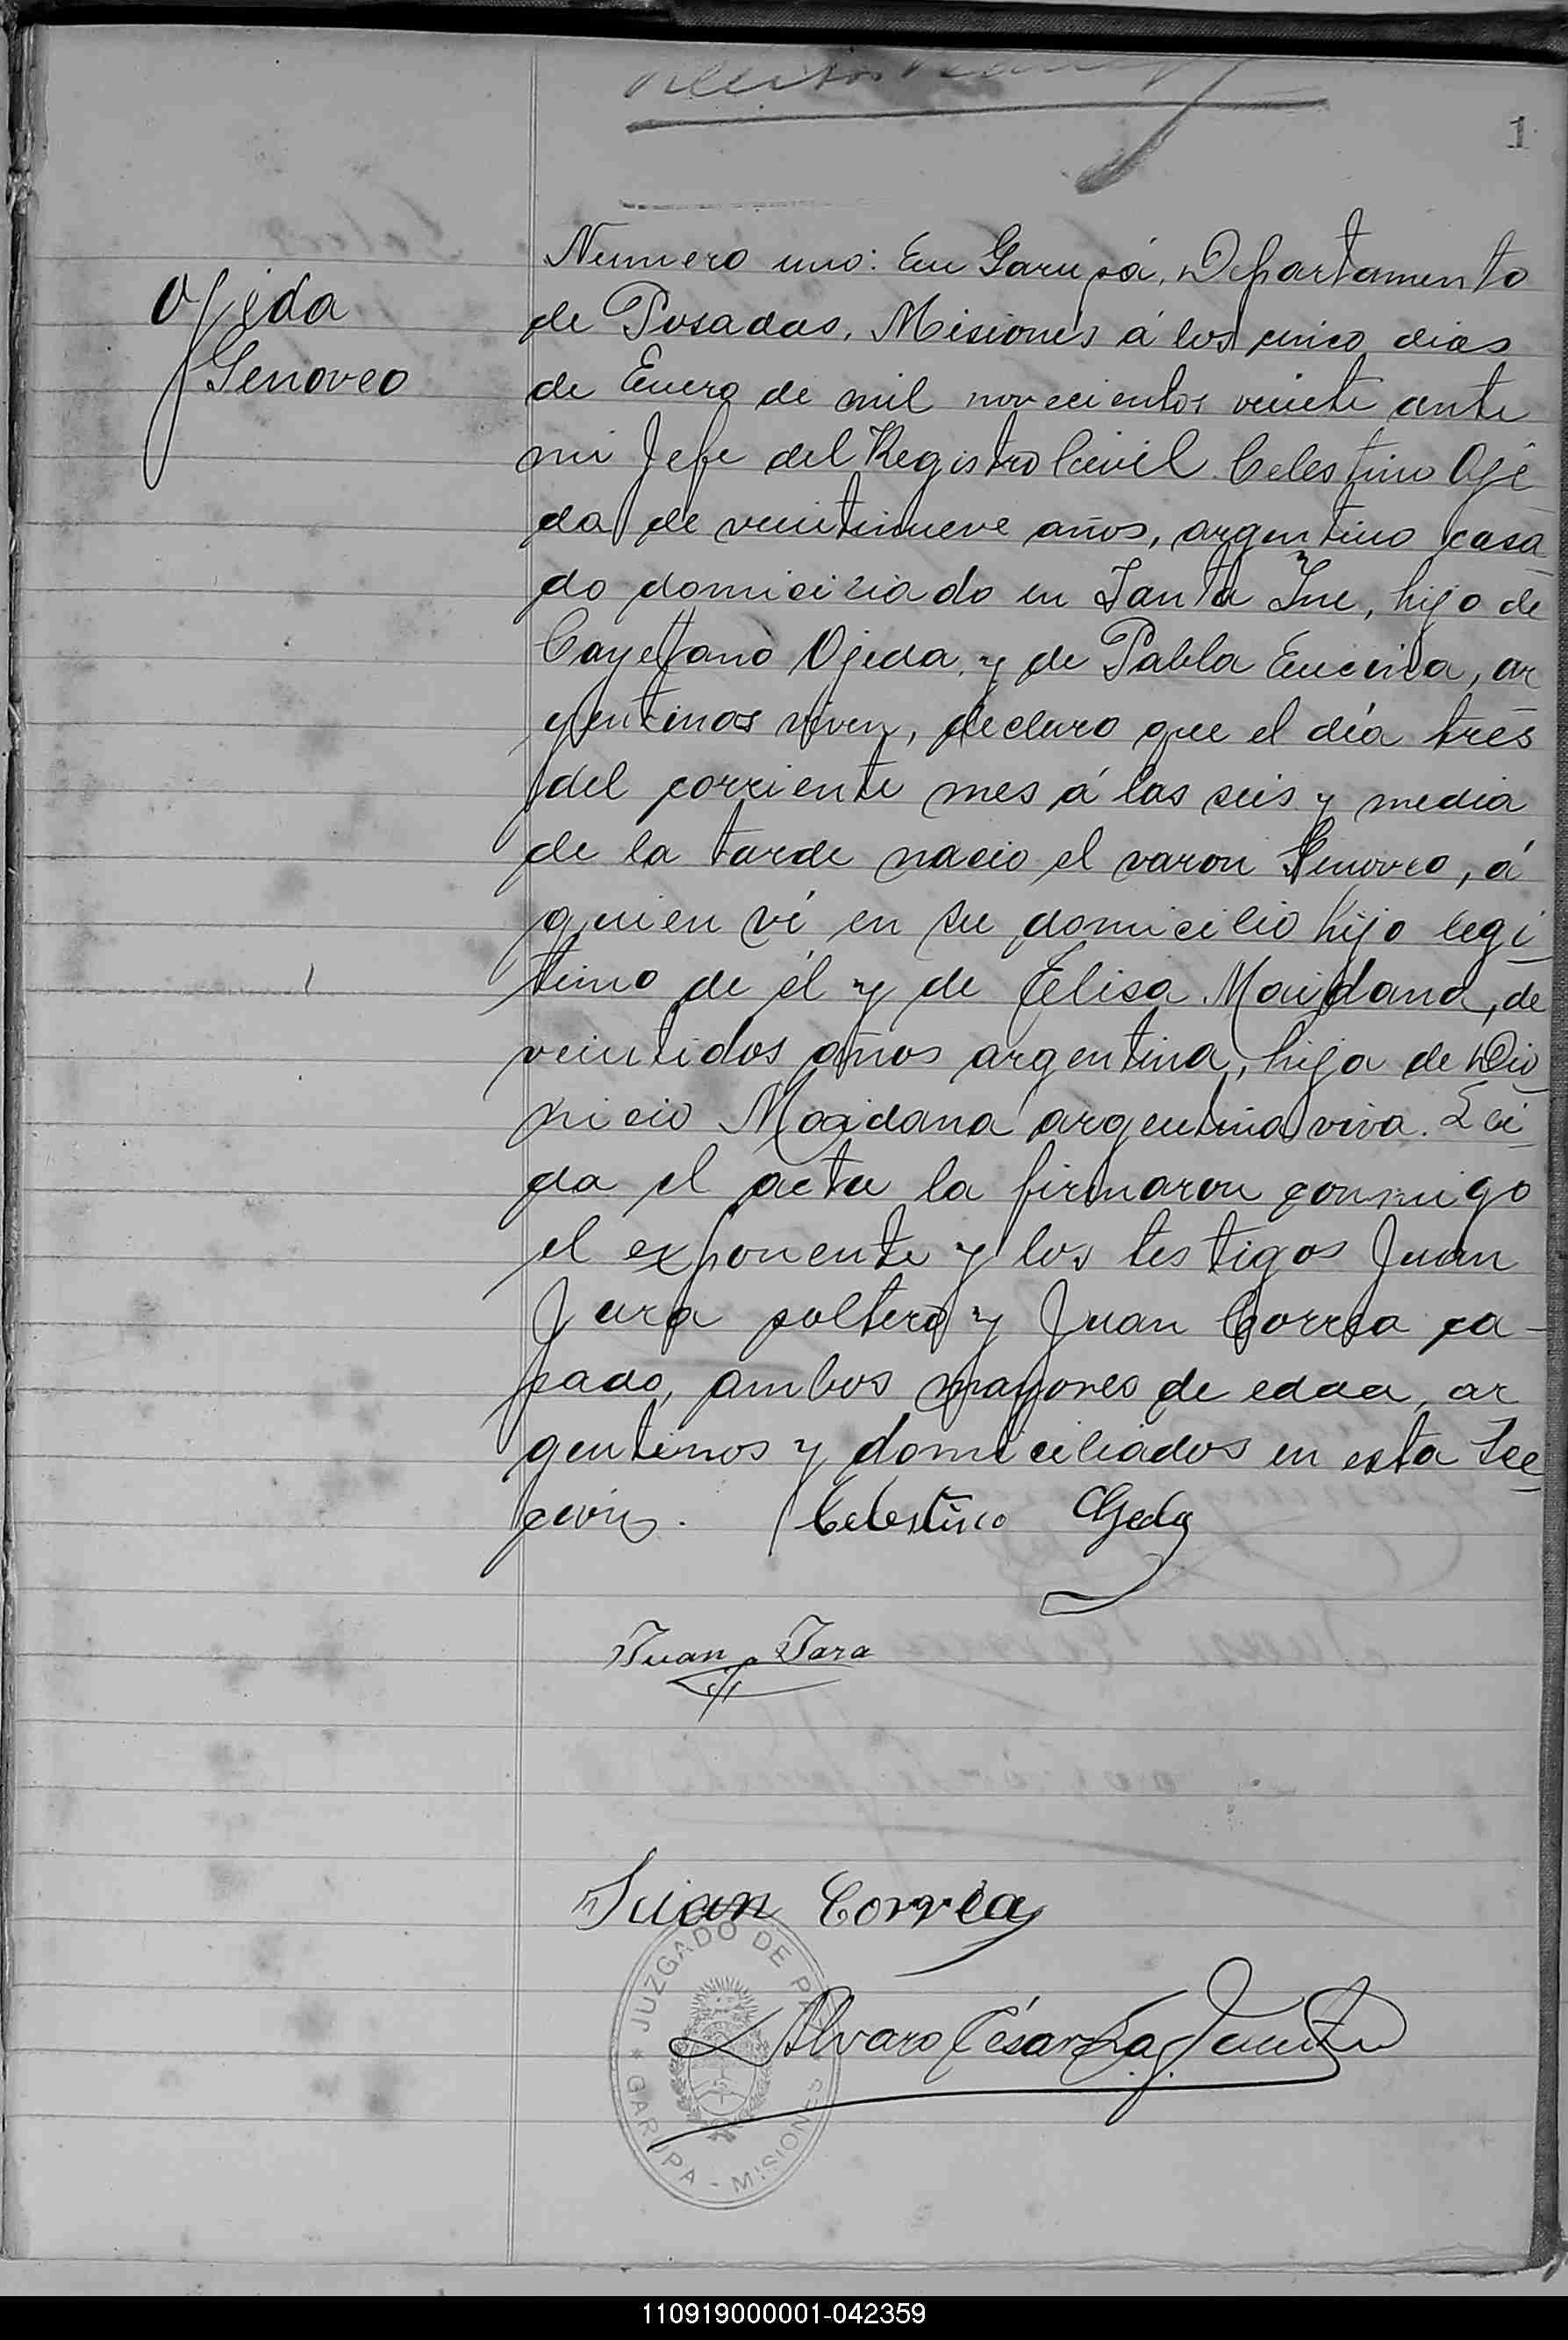 1
Ojeda
Genoveo
Numero uno: En Garupá, Departamento
de Posadas, Misiones á los cinco dias
de Enero de mil novecientos veinte ante
mi Jefe del Registro Civil Celestino Oje
da de veintinueve años, argentino casa
do domiciliado en Santa Ine, hijo de
Cayetano Ojeda y de Pabla Encina, ar
gentinos viven, declaro que el día tres
del corriente mes á las seis y media
de la tarde nacio el varon Genoveo, á
quien ví en su domicilio hijo legi
timo de él y de Elisa Maidana, de
veintidos años argentina, hija de Dio
nicio Maidana argentina viva. Lei
da el acta la firmaron conmigo
el exponente y los testigos Juan
Jara soltero y Juan Correa ca-
sado, ambos mayores de edad, ar
gentinos y domiciliados en esta Sec
ción. Celestino Ojeda
Juan Jara
Juan Correa
JUZGADO DE
GARUPA - MISIONES
Alvaro César
110919000001-042359